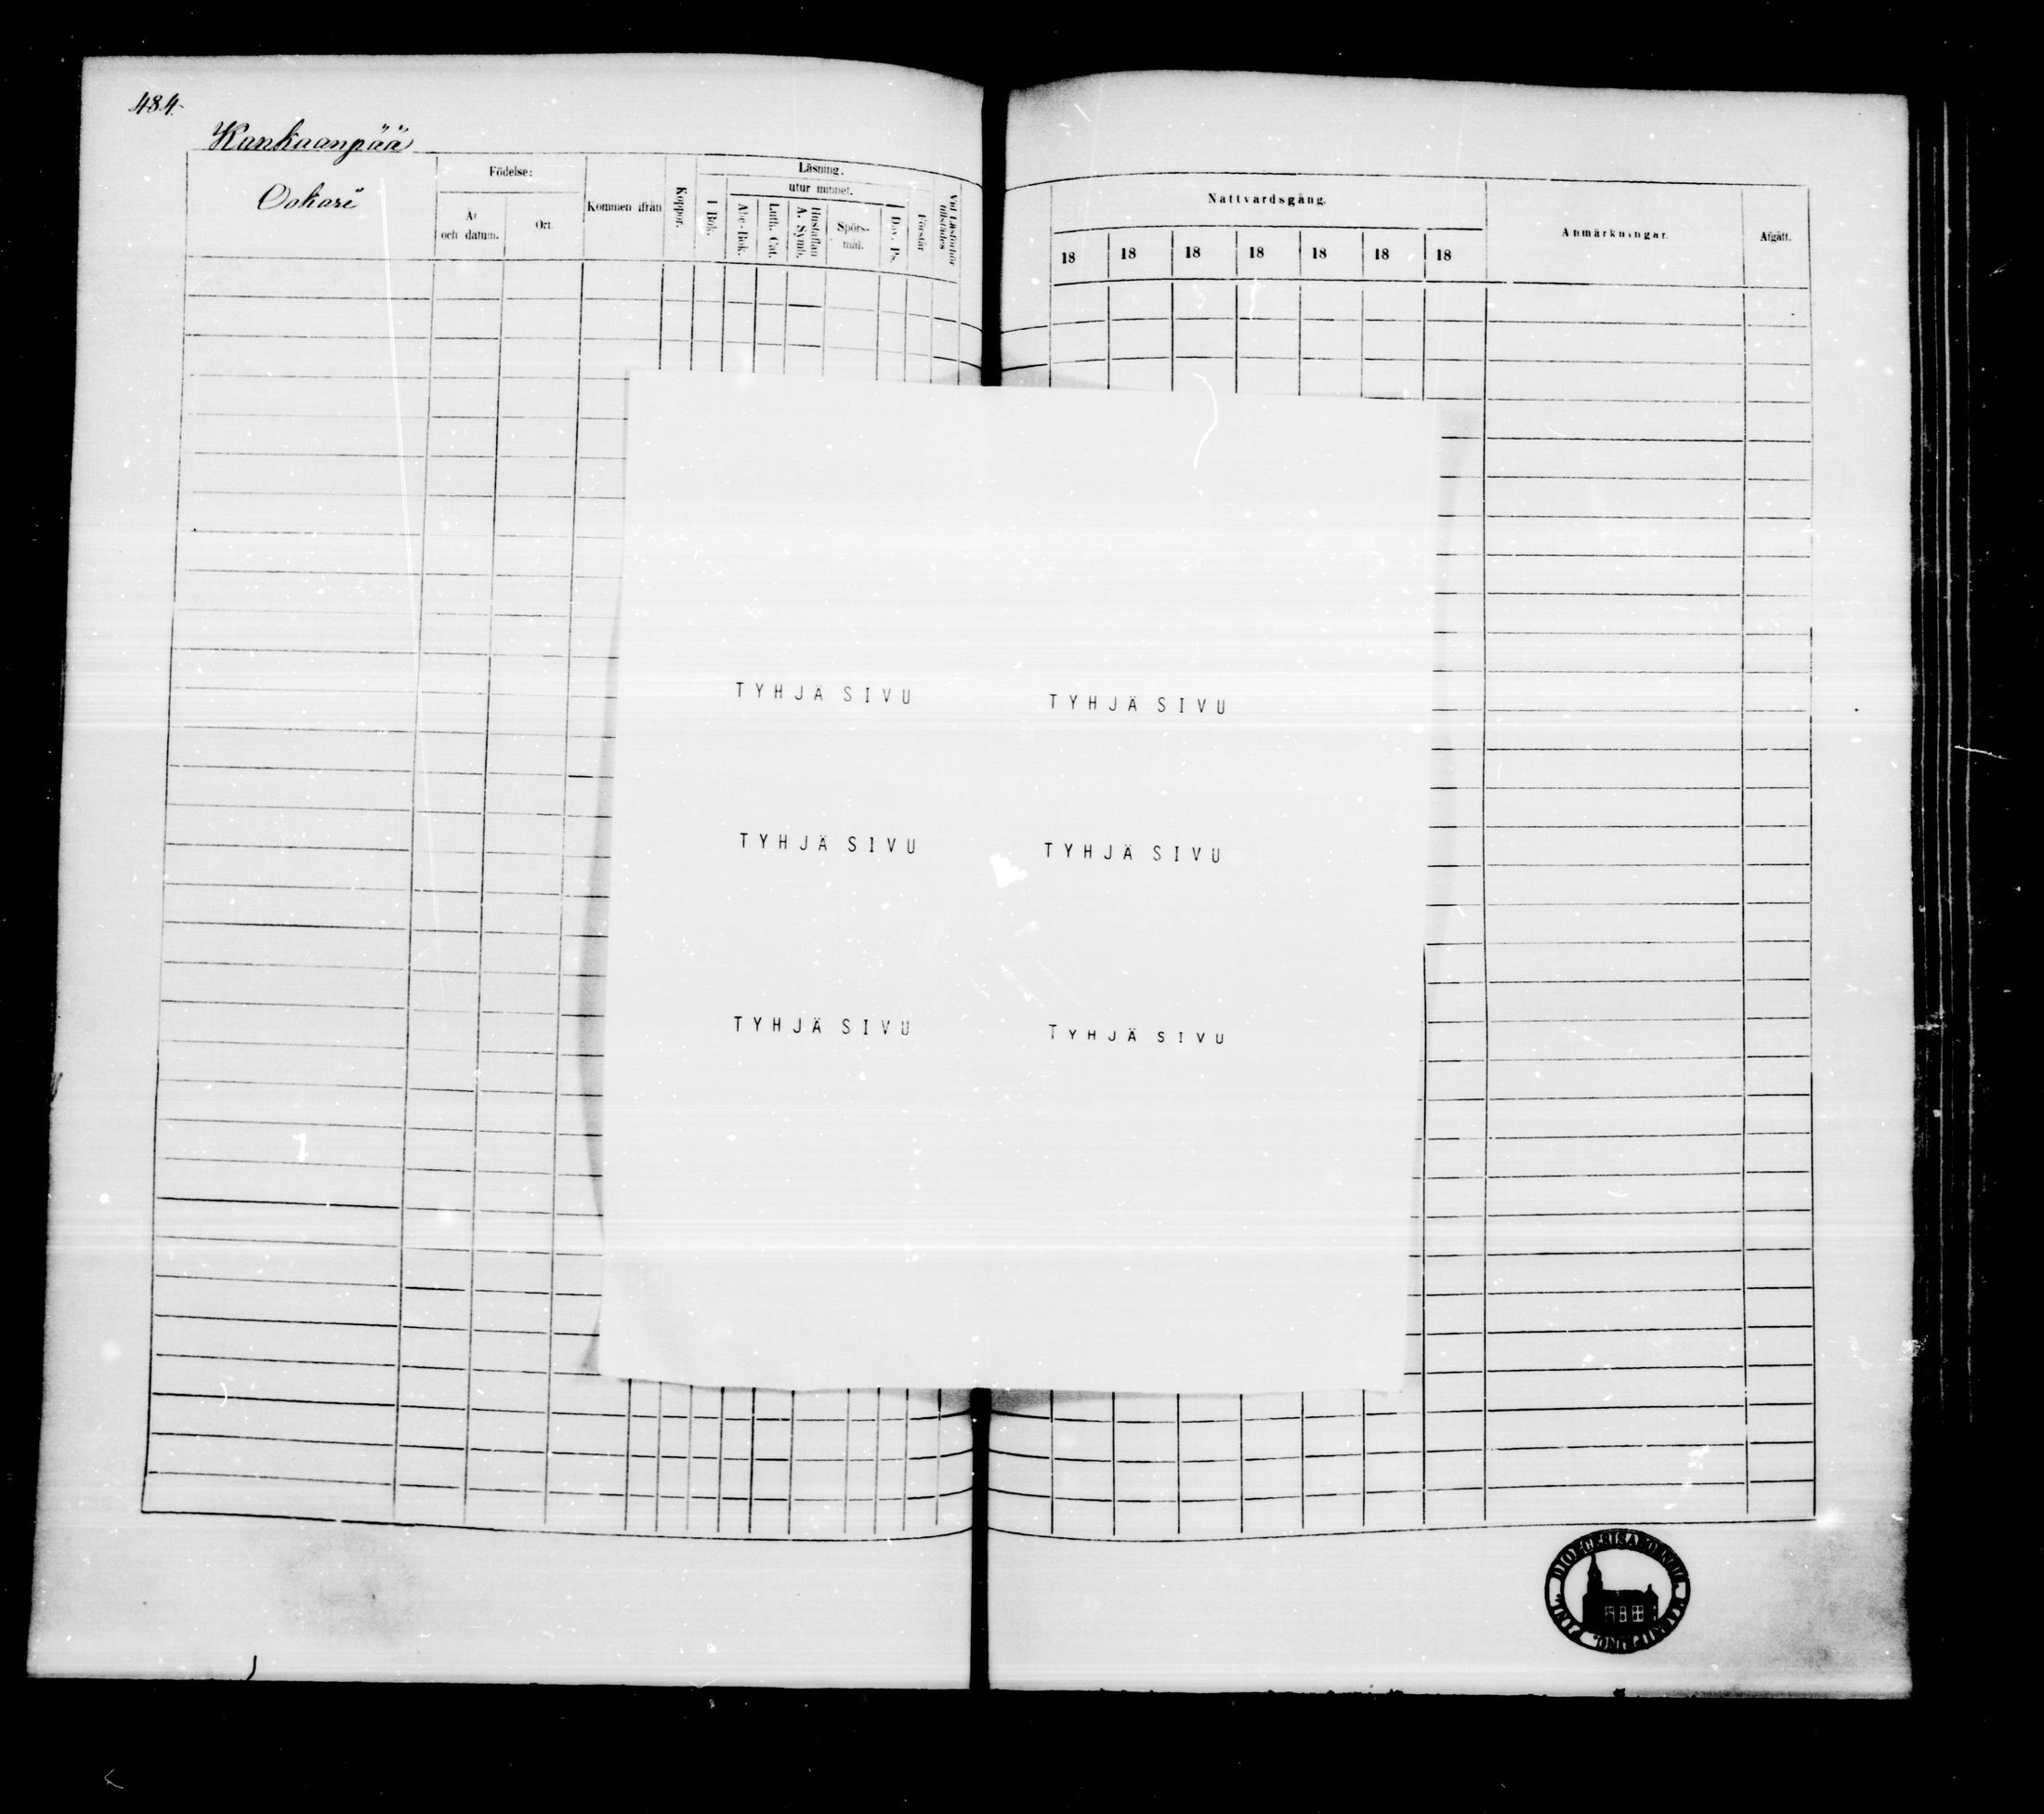 484.
Kankaanpää
Födelse:
År och datum.
Ort.
Kommen ifrån
Koppor.
Läsning.
I Bok.
utur minnet.
Abc-Bok.
Luth. Cat.
Hustaflan A. Symb.
Spörs-mål.
Dav. Ps.
Förstår
Vid Läsförhör tillstädes
Nattvardsgång.
18 18 18 18 18 18 18
Anmärkningar.
Afgått.
TYHJÄ SIVU TYHJÄ SIVU
TYHJÄ SIVU TYHJÄ SIVU
TYHJÄ SIVU TYHJÄ SIVU